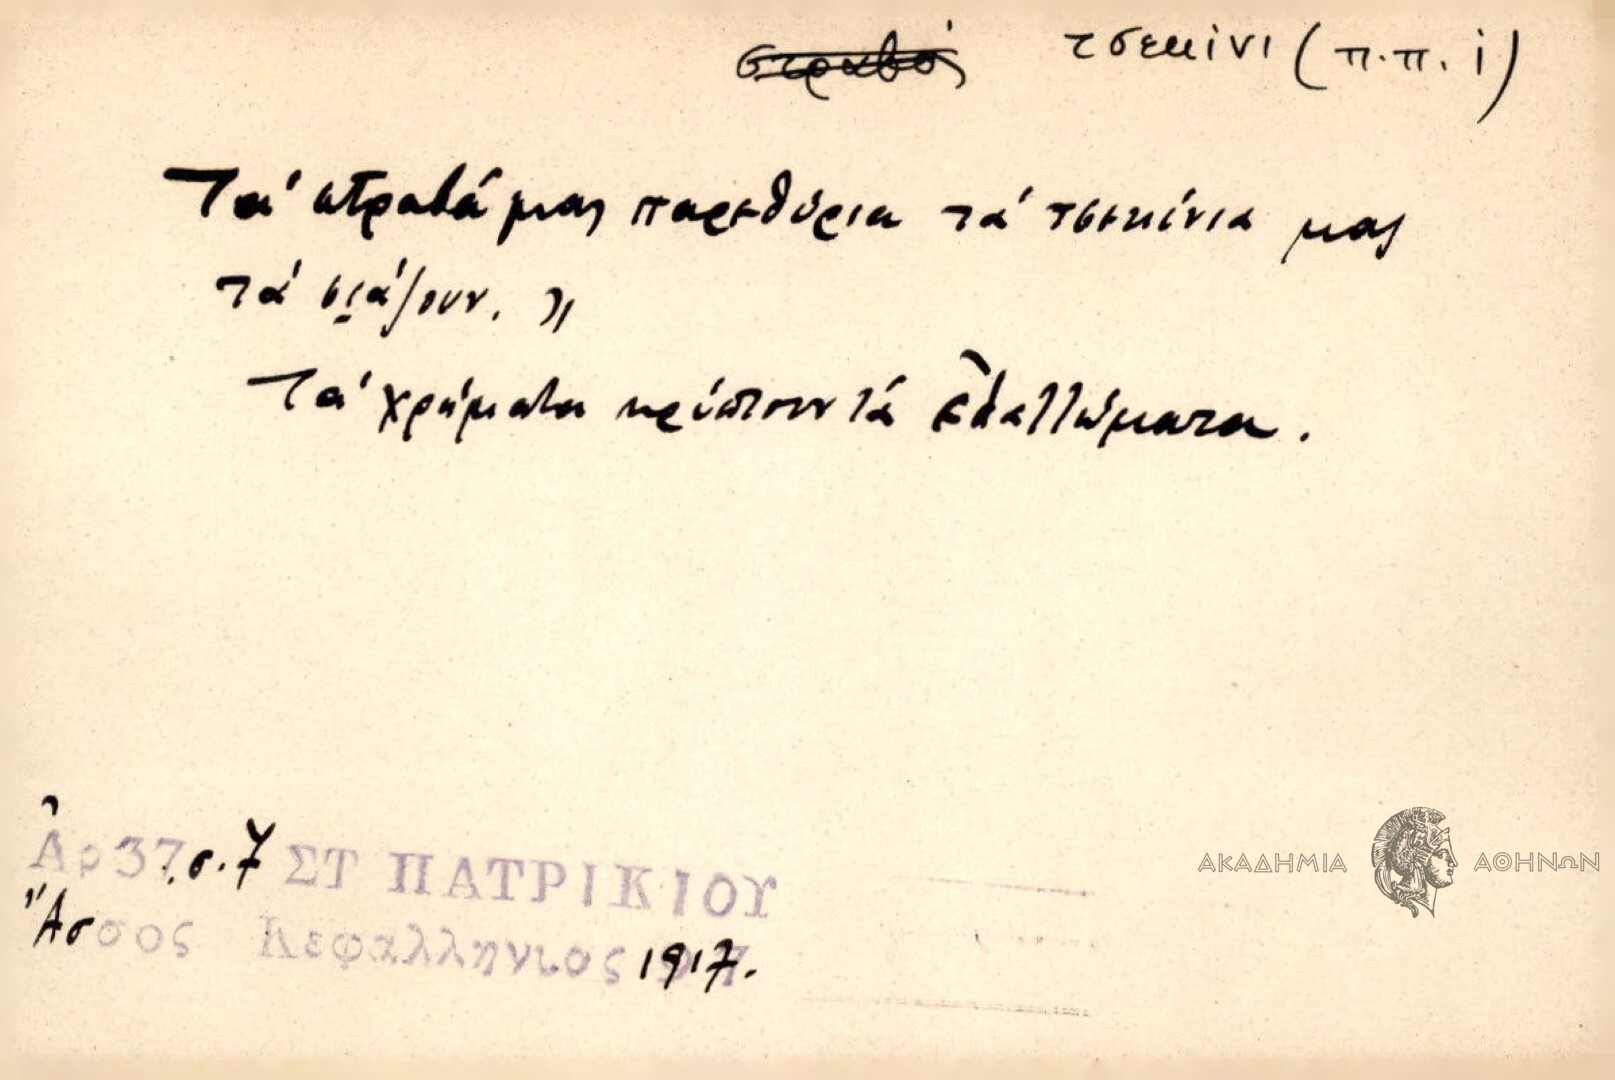 στραβός τσεκίνι (π.π. i)
Τά στραβά μας παρεθύρια τά τσεκίνια μας
τά σιάζουν. »
Τά χρήματα κρύπτουν τά ἐλαττώματα.
Ἀρ 37. σ. 7 ΣΤ ΠΑΤΡΙΚΙΟΥ
Ἄσσος Κεφαλληνιος 1917.
ΑΚΑΔΗΜΙΑ ΑΘΗΝΩΝ